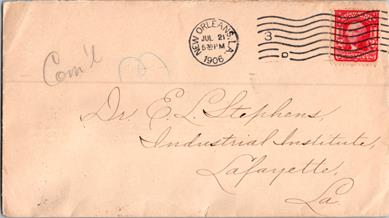 Com'l
NEW ORLEANS, LA.
JUL 21
5-30 PM
1906
3
D
Dr. E. L. Stephens,
Industrial Institute,
Lafayette,
La.